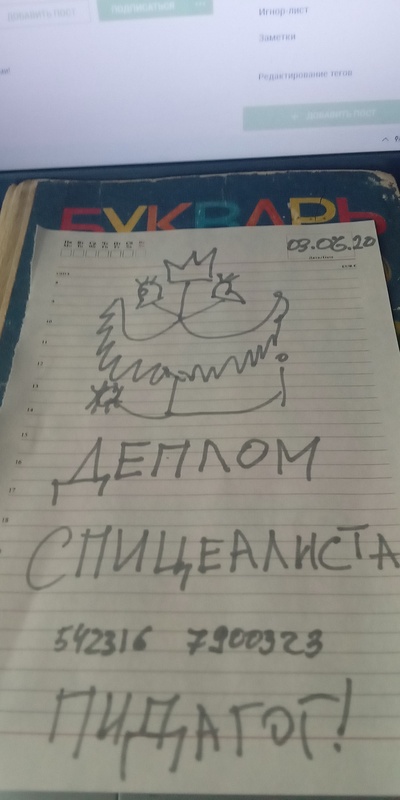 ДОБАВИТЬ ПОСТ
ПОДПИСАТЬСЯ
Игнор-лист
Заметки
Редактирование тегов
ДОБАВИТЬ ПОСТ
БУКВАРЬ
09.06.20
ДЕПЛОМ
СПИЦЕАЛИСТА
542316 7900323
ПИДАГОГ!